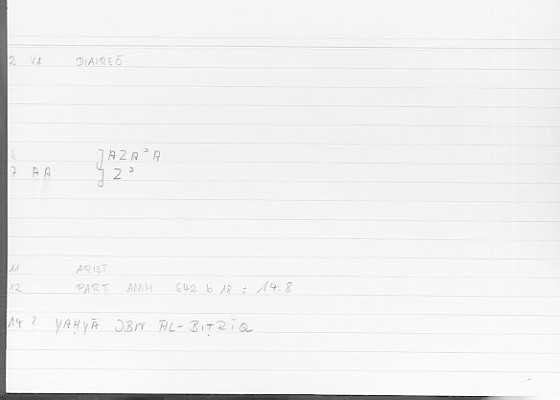 2 VA DIAIREŌ
6 ǦAZAʾA
7 AA ǦZʾ
11 ARIST
12 PART ANIM 642 b 18 = 14.8
14? YAḤYĀ IBN AL-BIṬRĪQ